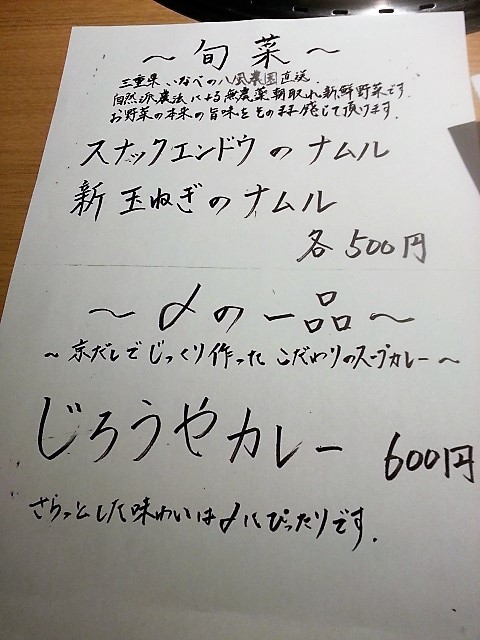 ～旬菜～
三重県いなべの八風農園直送.
自然派農法による無農薬朝取れ新鮮野菜です.
お野菜の本来の旨味をそのまま感じて頂けます.
スナックエンドウのナムル
新玉ねぎのナムル
各500円
～〆の一品～
～京だしでじっくり作ったこだわりのスープカレー～
じろうやカレー 600円
さらっとした味わいは〆にぴったりです.